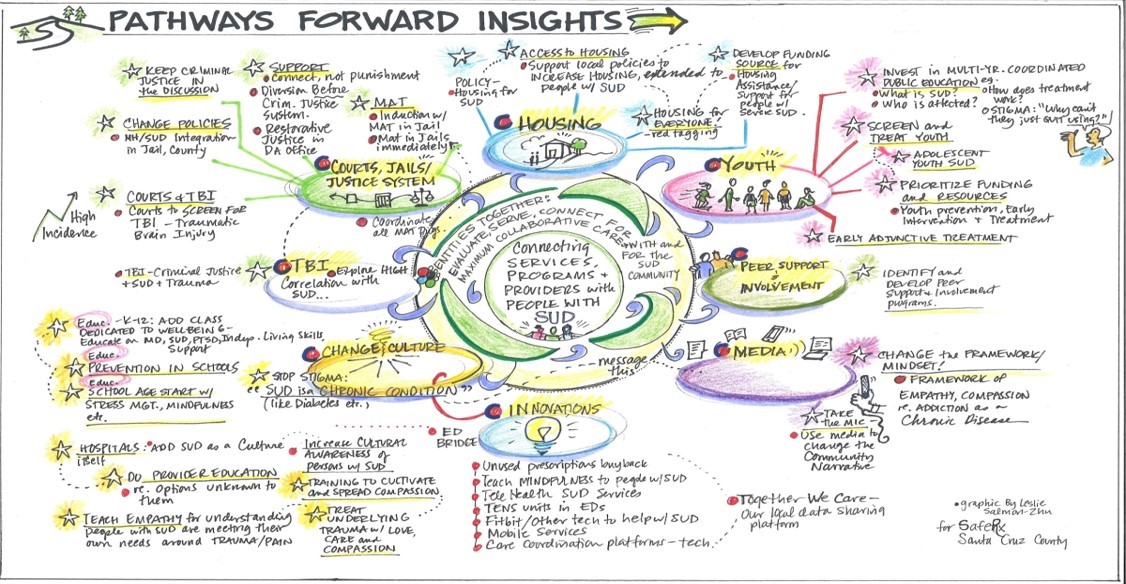 PATHWAYS FORWARD INSIGHTS
KEEP CRIMINAL
JUSTICE IN
the DISCUSSION
SUPPORT
Connect, not punishment
Diversion Before
Crim. Justice
System.
Restorative
Justice in
DA office
MAT
Induction w/
MAT in Jail
Mat in Jails
immediately
CHANGE POLICIES
MH/SUD Integration
in Jail, County
COURTS, JAILS/
JUSTICE SYSTEM
Coordinate
all MAT Prgs.
High
Incidence
COURTS & TBI
Courts to SCREEN FOR
TBI - Traumatic
Brain Injury
TBI-Criminal Justice
+ SUD + Trauma
TBI
Explore HIGH
Correlation with
SUD...
POLICY-
Housing for
SUD
ACCESS to HOUSING
Support local policies to
INCREASE HOUSING, extended to
people w/ SUD
DEVELOP FUNDING
SOURCE for
Housing
Assistance/
Support for
people w/
Severe SUD.
HOUSING for
EVERYONE!
-red tagging
HOUSING
YOUTH
INVEST in MULTI-YR. COORDINATED
PUBLIC EDUCATION eg.
What is SUD?
Who is affected?
How does treatment
work?
STIGMA: "Why can't
they just QUIT USING?"
SCREEN and
TREAT YOUTH
ADOLESCENT
YOUTH SUD
PRIORITIZE FUNDING
and RESOURCES
Youth prevention, Early
Intervention + Treatment
EARLY ADJUNCTIVE TREATMENT
ENTITIES TOGETHER:
EVALUATE, SERVE, CONNECT FOR
MAXIMUM COLLABORATIVE CARE
WITH and
FOR THE
SUD
COMMUNITY
Connecting
SERVICES,
PROGRAMS +
PROVIDERS with
PEOPLE WITH
SUD
message
this
PEER SUPPORT
INVOLVEMENT
IDENTIFY and
DEVELOP Peer
Support & Involvement
programs.
MEDIA
CHANGE the FRAMEWORK/
MINDSET!
FRAMEWORK OF
EMPATHY, COMPASSION
re. ADDICTION as a
Chronic Disease
TAKE
the MIC-
Use media to
change the
Community
Narrative
Educ. -K-12: ADD CLASS
DEDICATED TO WELLBEING &
Educate on MD, SUD, PTSD, Indep. Living Skills
Support
Educ.
PREVENTION IN SCHOOLS
Educ.
SCHOOL AGE START w/
STRESS MGT., MINDFULNESS
etc.
CHANGE CULTURE
STOP STIGMA:
"SUD is a CHRONIC CONDITION"
(like Diabetes etc.)
HOSPITALS: ADD SUD as a Culture
itself
Increase CULTURAL
AWARENESS of
persons w/ SUD
DO PROVIDER EDUCATION
re. Options unknown to
them
TRAINING TO CULTIVATE
and SPREAD COMPASSION
TEACH EMPATHY for understanding
people with SUD are meeting their
own needs around TRAUMA/PAIN
TREAT
UNDERLYING
TRAUMA w/ LOVE,
CARE and
COMPASSION
INNOVATIONS
ED
BRIDGE
Unused prescriptions buyback
Teach MINDFULNESS to people w/SUD
Tele Health SUD Services
TENS units in EDs
Fitbit/other tech to help w/ SUD
Mobile Services
Care coordination platforms - tech.
Together We Care-
Our local data sharing
platform
graphic By Leslie
Salmon-Zhu
for SafeRx
Santa Cruz County